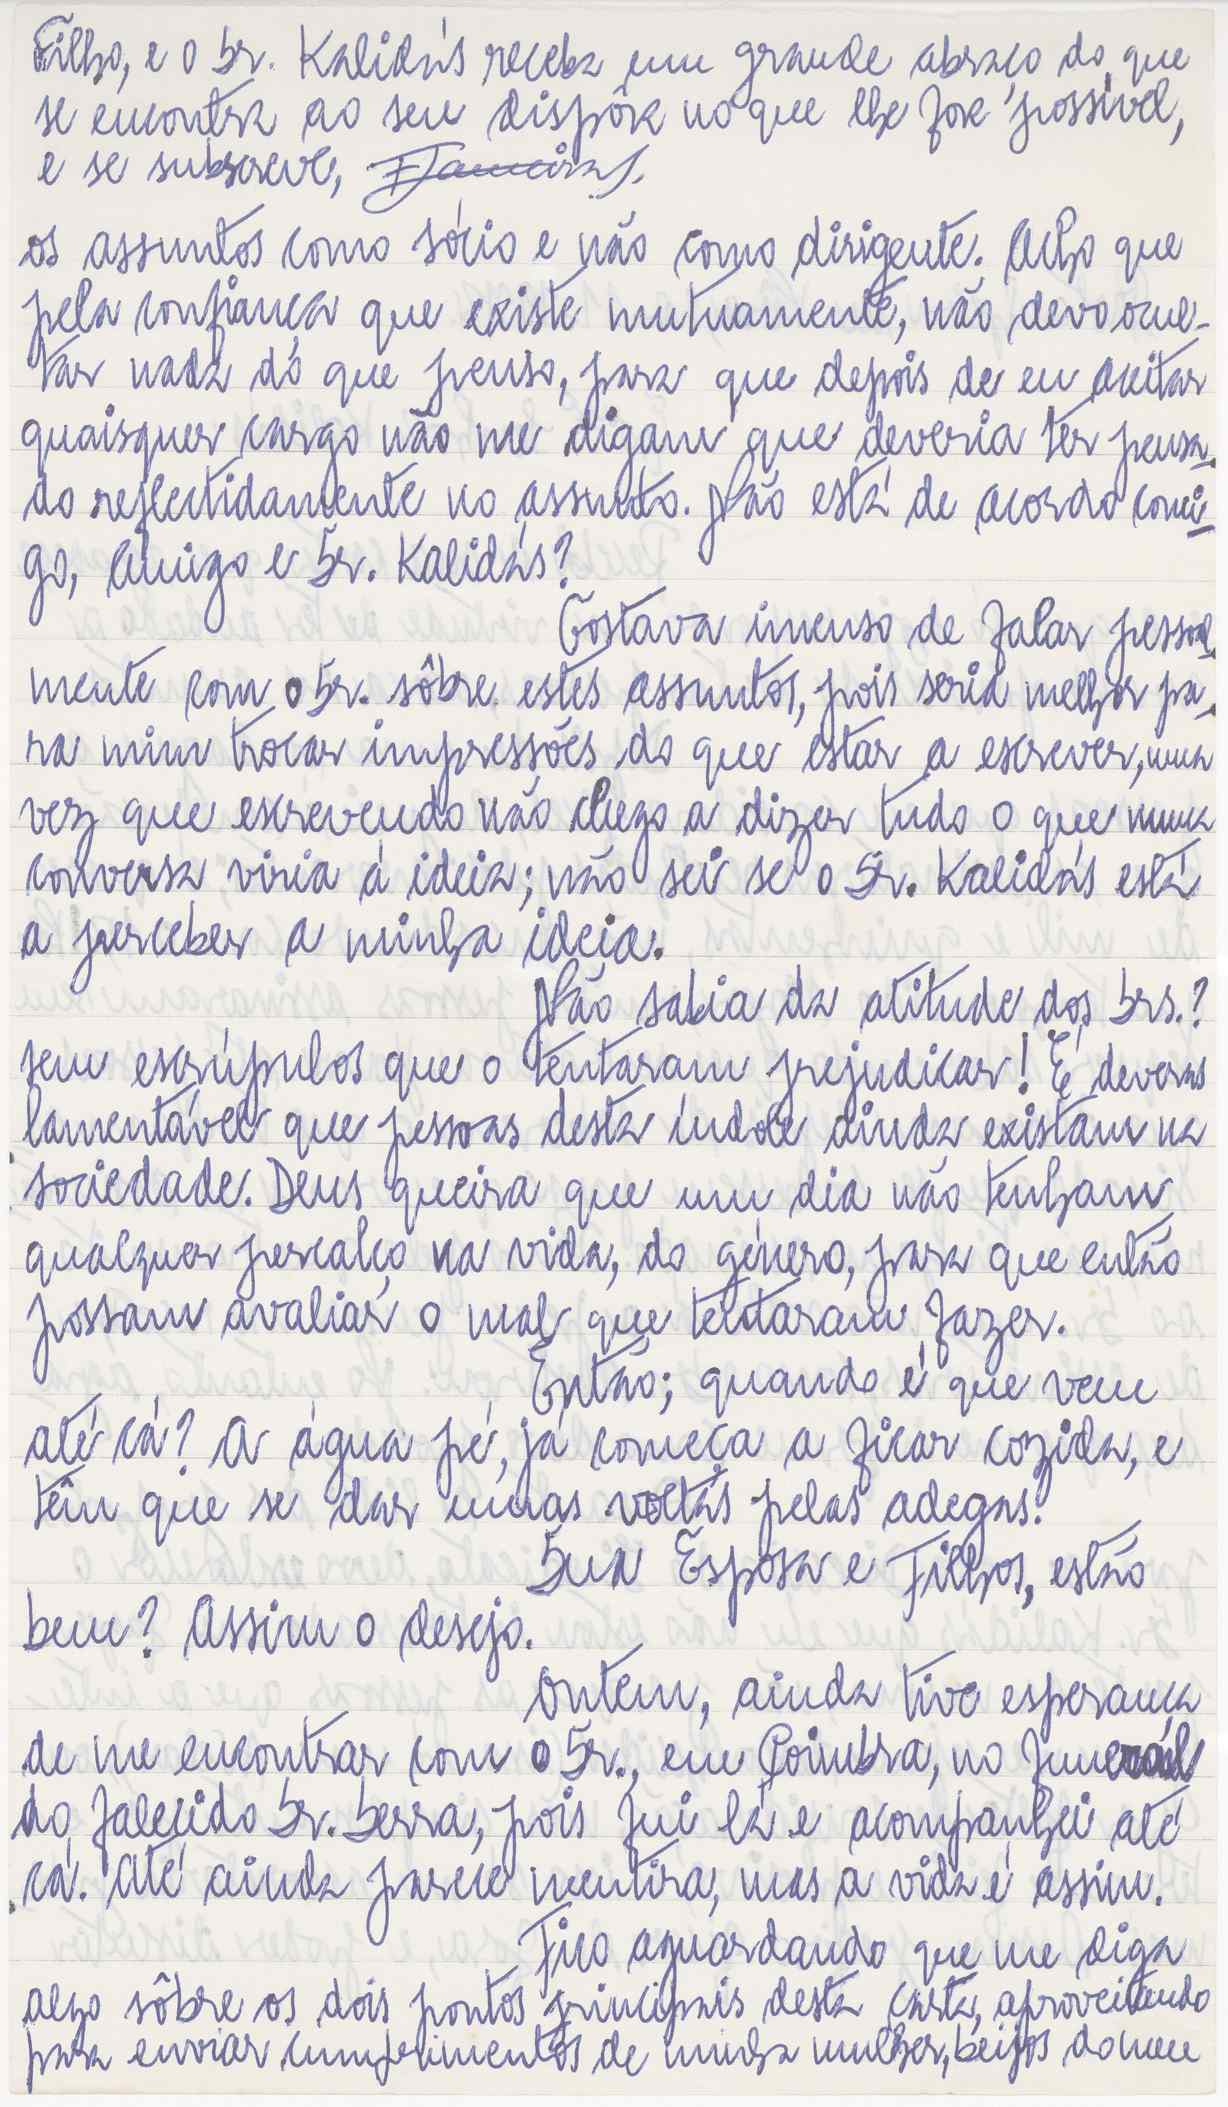 Filho, e o Sr. Kalidás receba um grande abraço do que
se encontra ao seu dispôr no que lhe fôr possível,
e se subscreve,
os assuntos como sócio e não como dirigente. Acho que
pela confiança que existe mutuamente, não devo ocul-
tar nada do que penso, para que depois de eu aceitar
quaisquer cargo não me digam que deveria ter pensa-
do reflectidamente no assunto. Não está de acordo comi-
go, Amigo e Sr. Kalidás?
Gostava imenso de falar pessoal-
mente com o Sr. sôbre estes assuntos, pois seria melhor pa-
ra mim trocar impressões do que estar a escrever, uma
vez que escrevendo não chego a dizer tudo o que numa
conversa viria á ideia; não sei se o Sr. Kalidás está
a perceber a minha ideia.
Não sabia da atitude dos Srs.?
sem escrúpulos que o tentaram prejudicar! É deveras
lamentável que pessoas desta índole ainda existam na
sociedade. Deus queira que um dia não tenham
qualquer percalço na vida, do género, para que então
possam avaliar o mal que tentaram fazer.
Então; quando é que vem
até cá? A água pé, já começa a ficar cozida, e
têm que se dar umas voltas pelas adegas.
Sua Esposa e Filhos, estão
bem? Assim o desejo.
Ontem, ainda tive esperança
de me encontrar com o Sr., em Coimbra, no funerál
do falecido Sr. Serra, pois fui lá e acompanhei até
cá. Até ainda parece mentira, mas a vida é assim.
Fico aguardando que me diga
algo sôbre os dois pontos principais desta carta, aproveitando
para enviar cumprimentos de minha mulher, beijos do meu